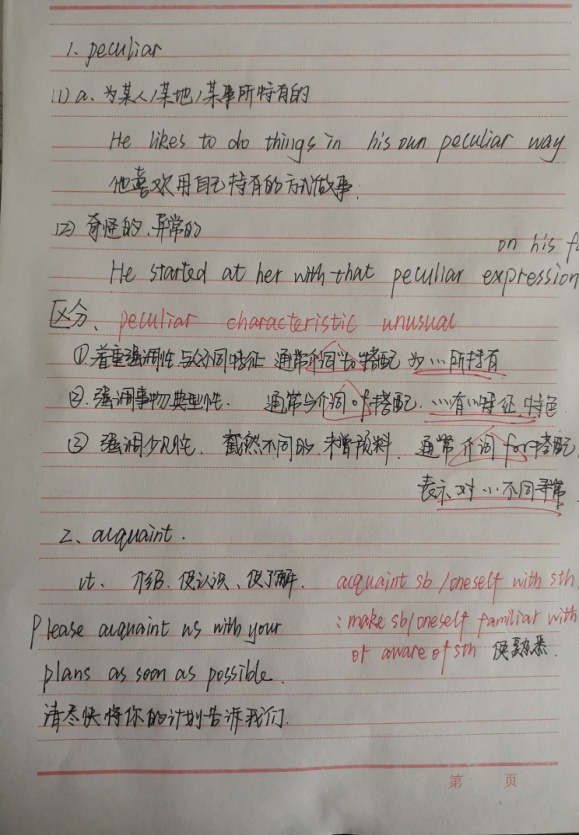 1、peculiar
(1) a. 为某人/某地/某事所特有的
He likes to do things in his own peculiar way
他喜欢用自己特有的方式做事.
(2) 奇怪的、异常的
on his fa
He started at her with that peculiar expression
区分、peculiar characteristic unusual
①.着重强调性与众不同特征 通常介词to搭配 为…所特有
②.强调事物典型性. 通常与介词of搭配. …有…特征 特色
③ 强调少见性. 截然不同的. 未曾预料. 通常介词for搭配.
表示对…不同寻常
2、acquaint.
vt. 介绍. 使认识、使了解. acquaint sb/oneself with sth
Please acquaint us with your : make sb/oneself familiar with
or aware of sth 使熟悉.
plans as soon as possible.
请尽快将你的计划告诉我们.
第 页